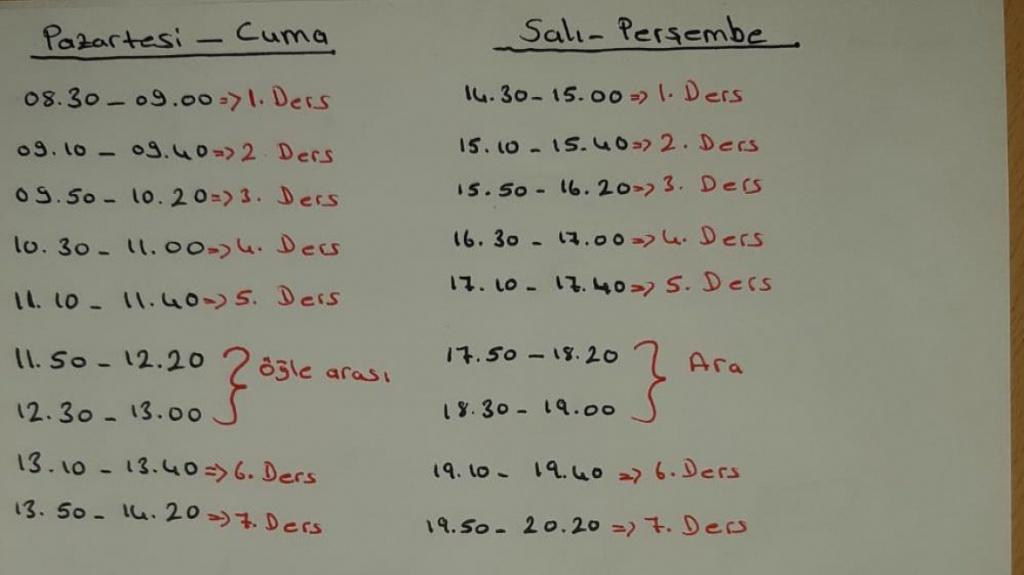 Pazartesi - Cuma
08.30 - 09.00 => 1. Ders
09.10 - 09.40 => 2 Ders
09.50 - 10.20 => 3. Ders
10.30 - 11.00 => 4. Ders
11.10 - 11.40 => 5. Ders
11.50 - 12.20
12.30 - 13.00
} öğle arası
13.10 - 13.40 => 6. Ders
13.50 - 14.20 => 7. Ders
Salı - Perşembe
14.30 - 15.00 => 1. Ders
15.10 - 15.40 => 2. Ders
15.50 - 16.20 => 3. Ders
16.30 - 17.00 => 4. Ders
17.10 - 17.40 => 5. Ders
17.50 - 18.20
18.30 - 19.00
} Ara
19.10 - 19.40 => 6. Ders
19.50 - 20.20 => 7. Ders